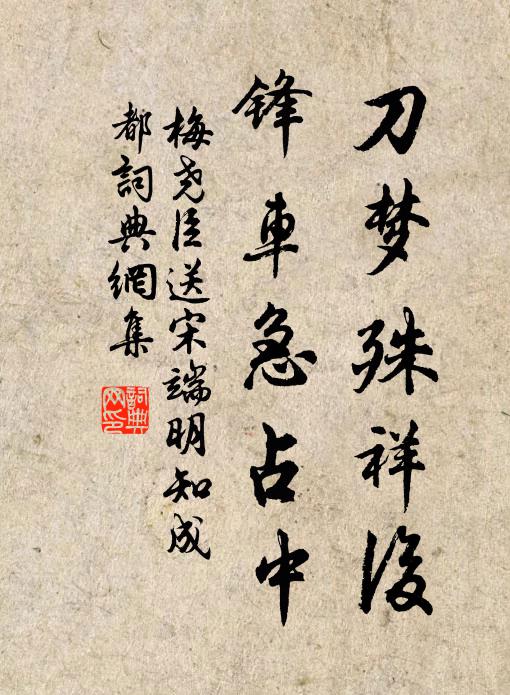 刀梦殊祥後
锋車急占中
梅尧臣送宋端明知成
都詞典網集
詞典网印